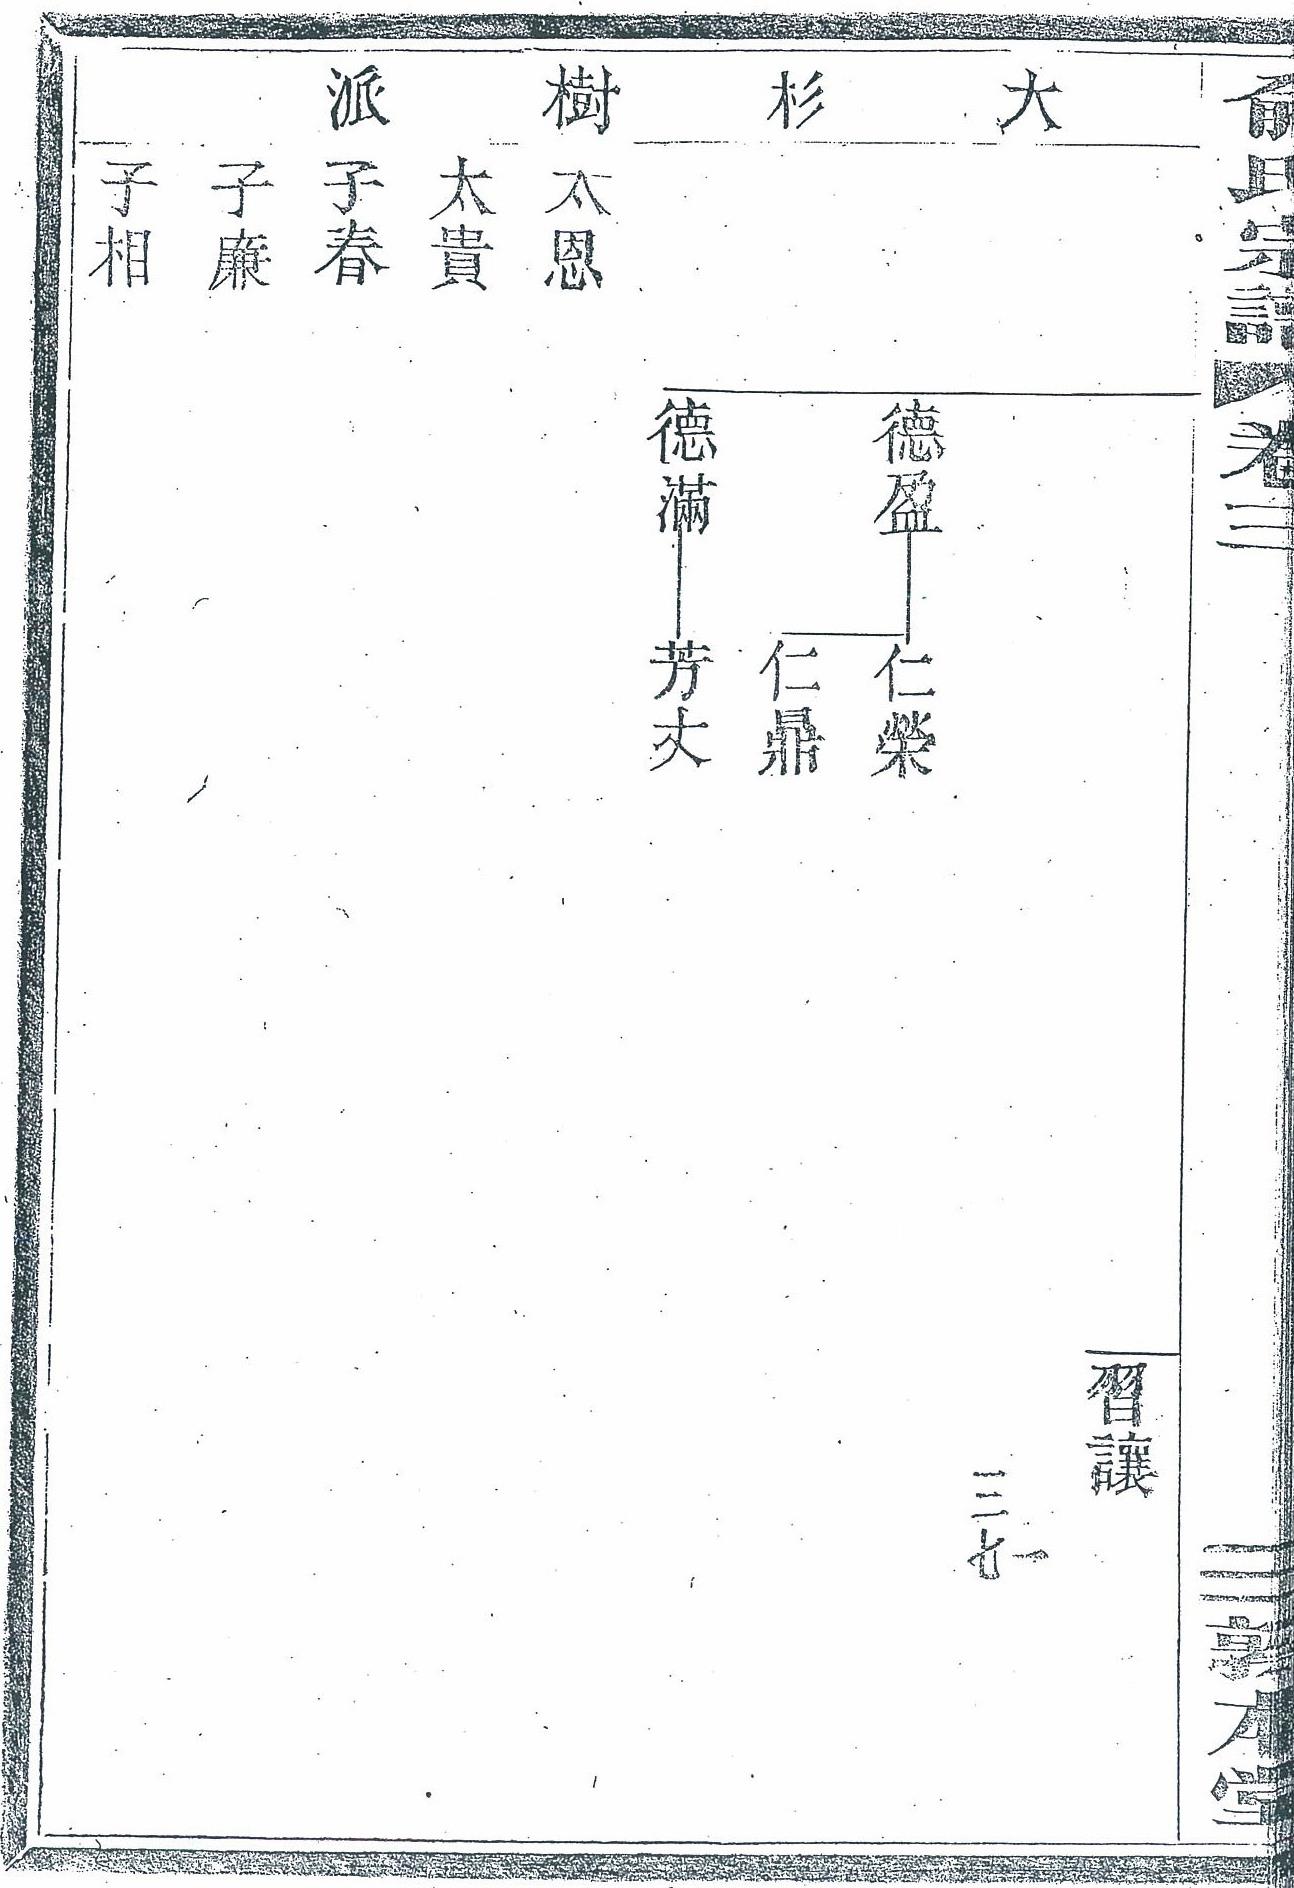 俞氏宗譜
卷三
三
敦本堂
大杉樹派
德盈
仁榮
仁鼎
德滿
芳
習讓
三七一
太恩
太貴
子春
子廉
子相